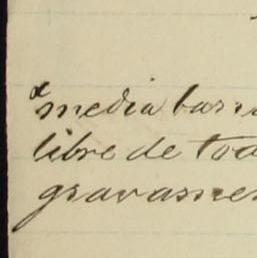 a
media barr
libre de tod
gravamen